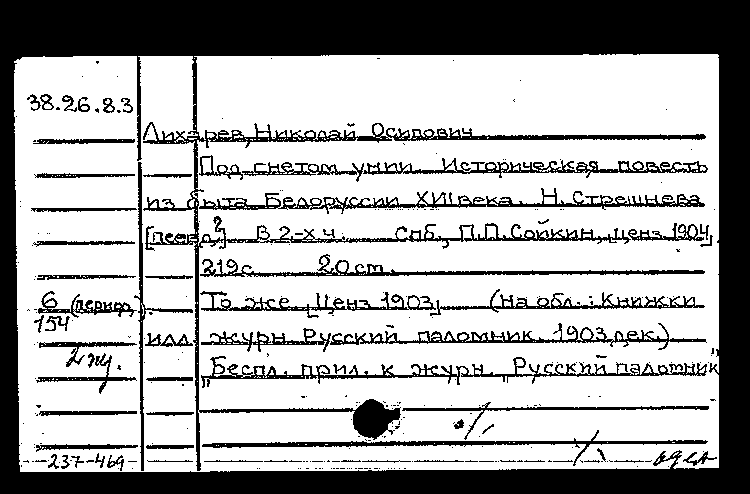 38.26.8.3
Лихарев, Николай Осипович
Под гнетом унии. Историческая повесть
из быта Белоруссии XVII века. Н. Стрешнева
[псевд.?] В 2-х ч. Спб., П.П. Сойкин, ценз 1904.
219 с. 20 см.
6 (период.) То же [Ценз 1903] (На обл.: Книжки
154 илл. журн. Русский паломник. 1903, дек.)
2 экз. "Беспл. прил. к журн. "Русский паломник"
-237-469